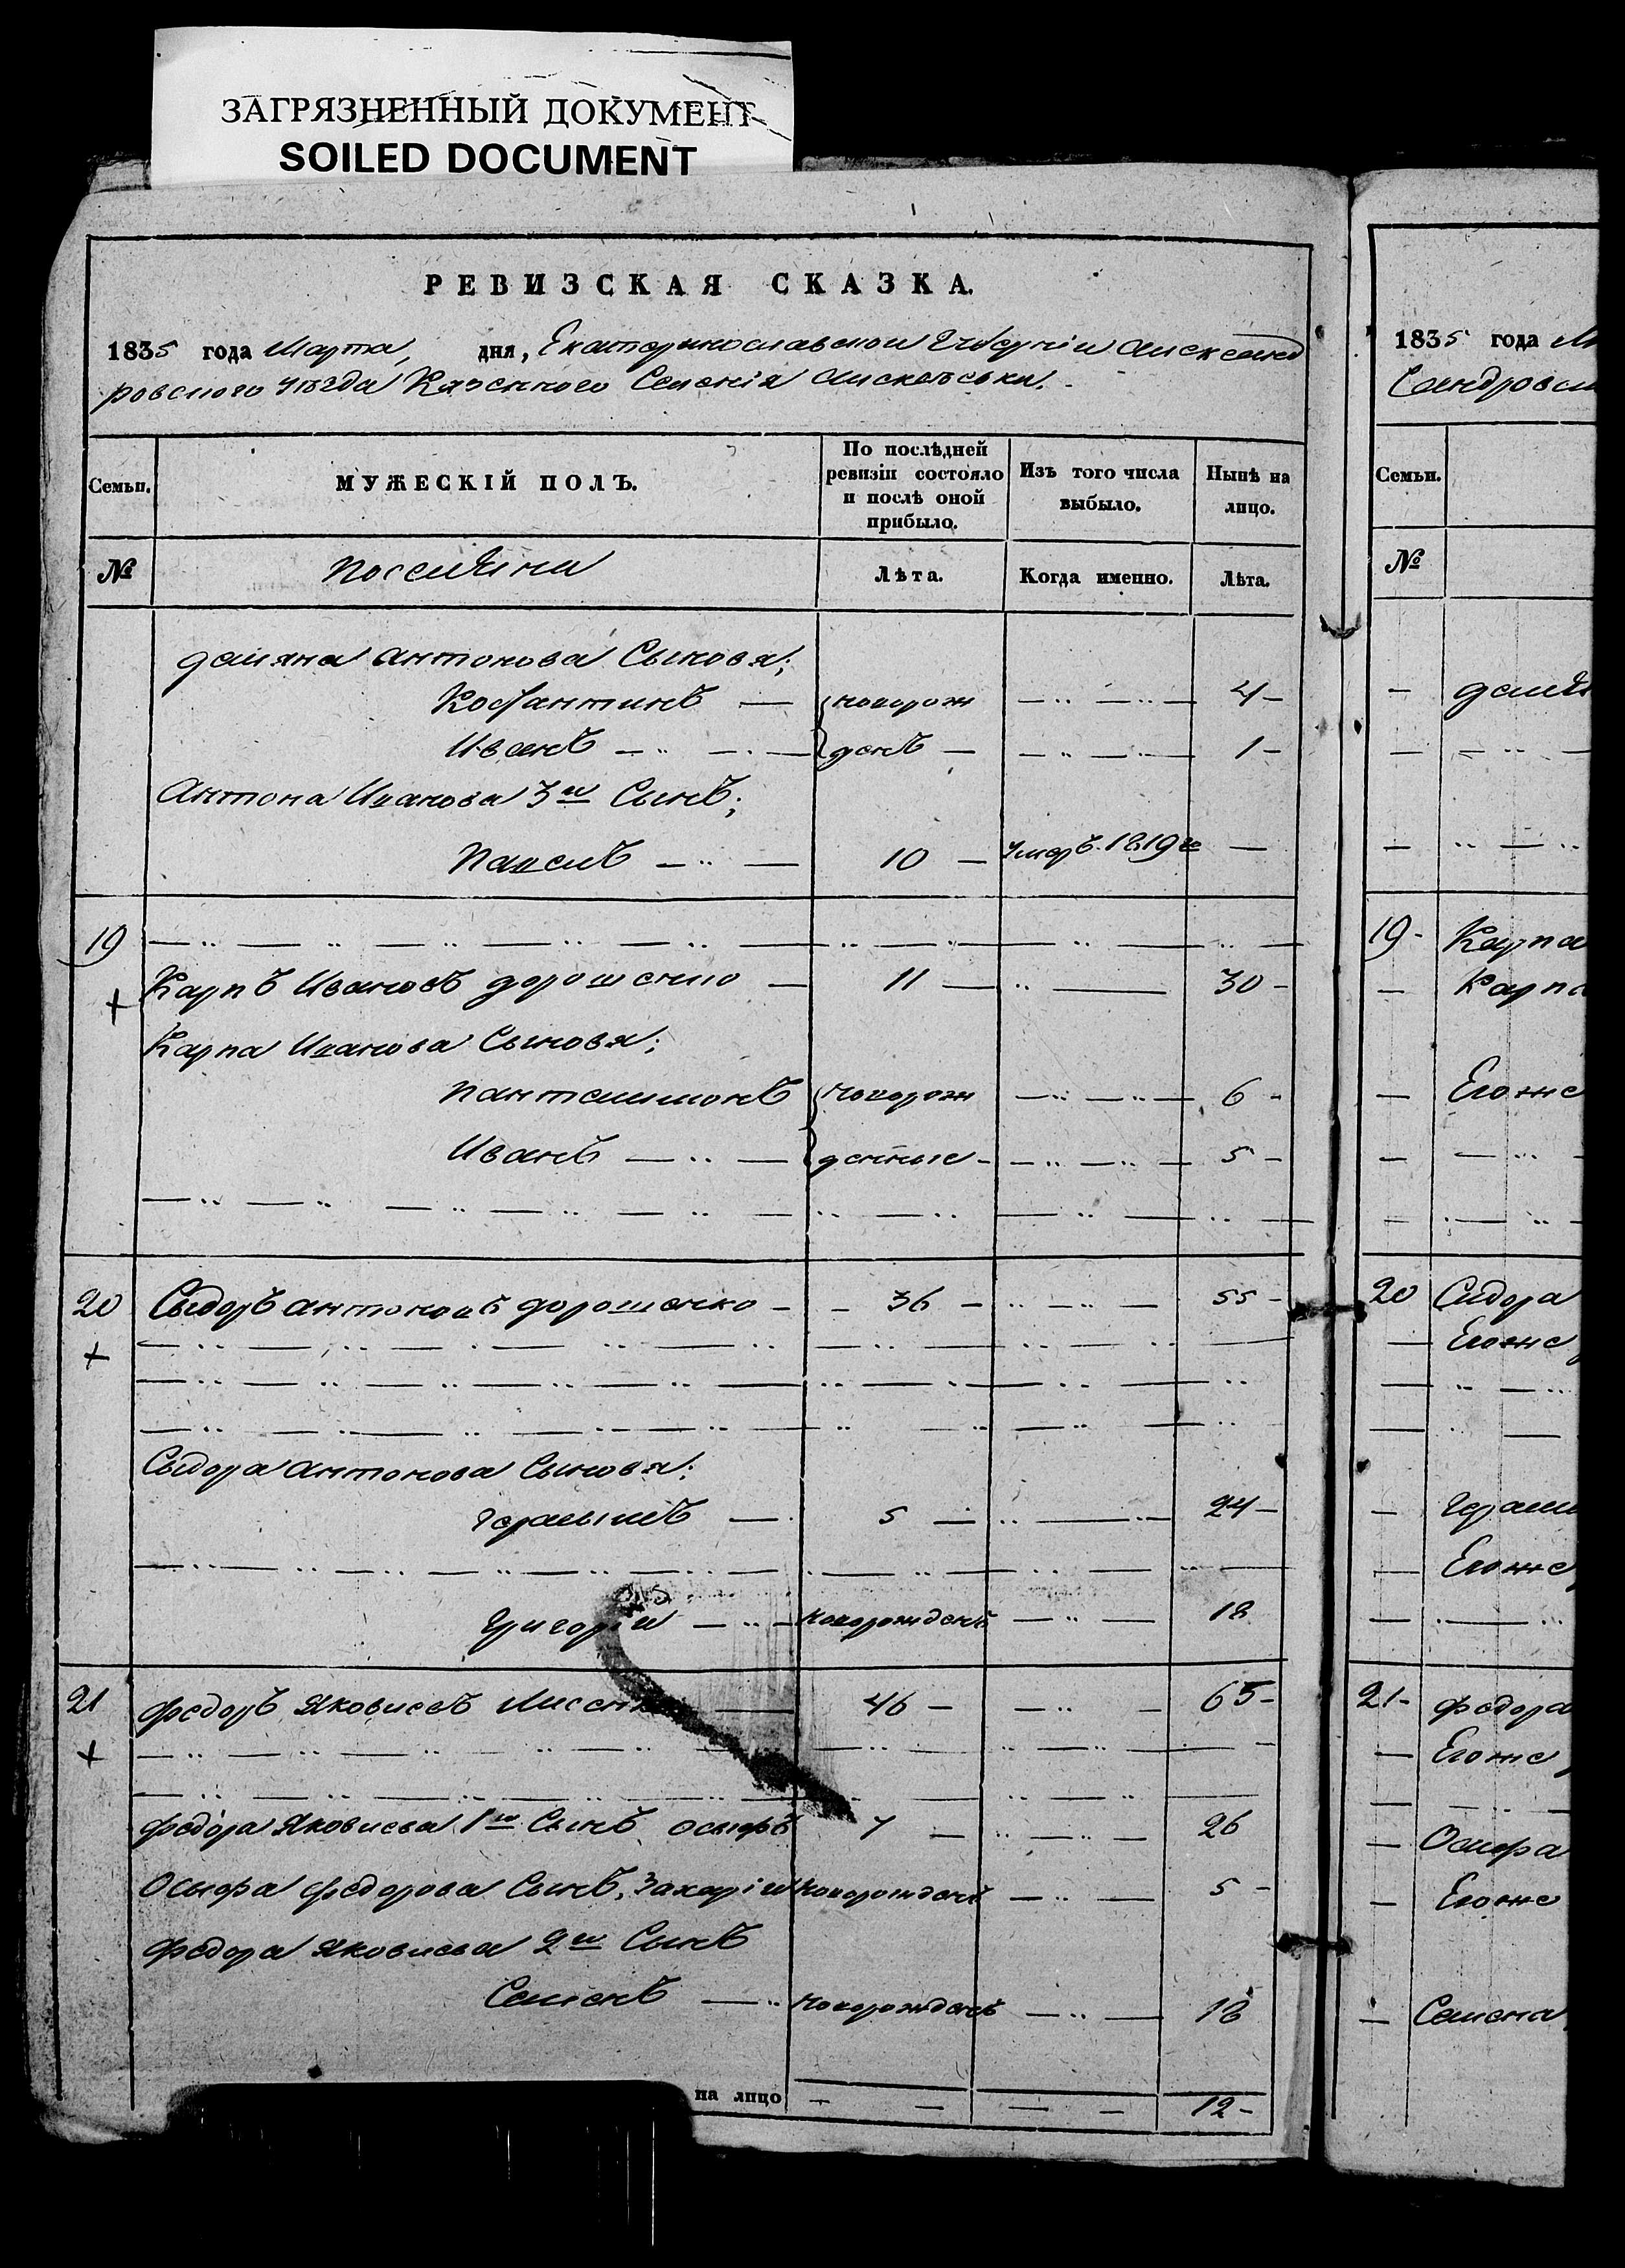 ЗАГРЯЗНЕННЫЙ ДОКУМЕНТ
SOILED DOCUMENT
РЕВИЗСКАЯ СКАЗКА.
1835 года Марта, дня, Екатеринославской Губерніи Александ
ровского уезда Казенного Селенія
Семьи. МУЖЕСКІЙ ПОЛЪ. По послѣдней ревизіи состояло и послѣ оной прибыло. Изъ того числа выбыло. Нынѣ на лицо.
№ Поселяни Лѣта. Когда именно. Лѣта.
Демяна Антонова Сыновя;
Костантинъ — новорож — 4 —
Иванъ — денъ — 1 —
Антона Иванова 3й Сынъ;
Павелъ — 10 — Умеръ 1819го —
19
Карпъ Ивановъ Дорошенко — 11 — 30 -
+
Карпа Иванова Сыновя;
Пантелимонъ новорож — 6 -
Иванъ — денные - — 5 -
20 Сыдоръ Антоновъ Дорошенко - 36 — 55 -
+
Сыдора Антонова Сыновя;
Герасимъ — 5 — 24 —
Григорій — новорожденъ — 18
21 Федоръ Яковлевъ 46 — 65 -
+
Федора Яковлева 1й Сынъ Осыфъ 7 — 26
Осыфа Федорова Сынъ, Захарій новорожденъ — 5 -
Федора Яковлева 2й Сынъ
Семенъ — новорожденъ — 18
на лицо — — 12 -
1835 года
Семьи.
№
19 - Карпа
Егоже
20 Сидора
Егоже
Егоже
21 - Федора
Егоже
Осифа
Егоже
Семена